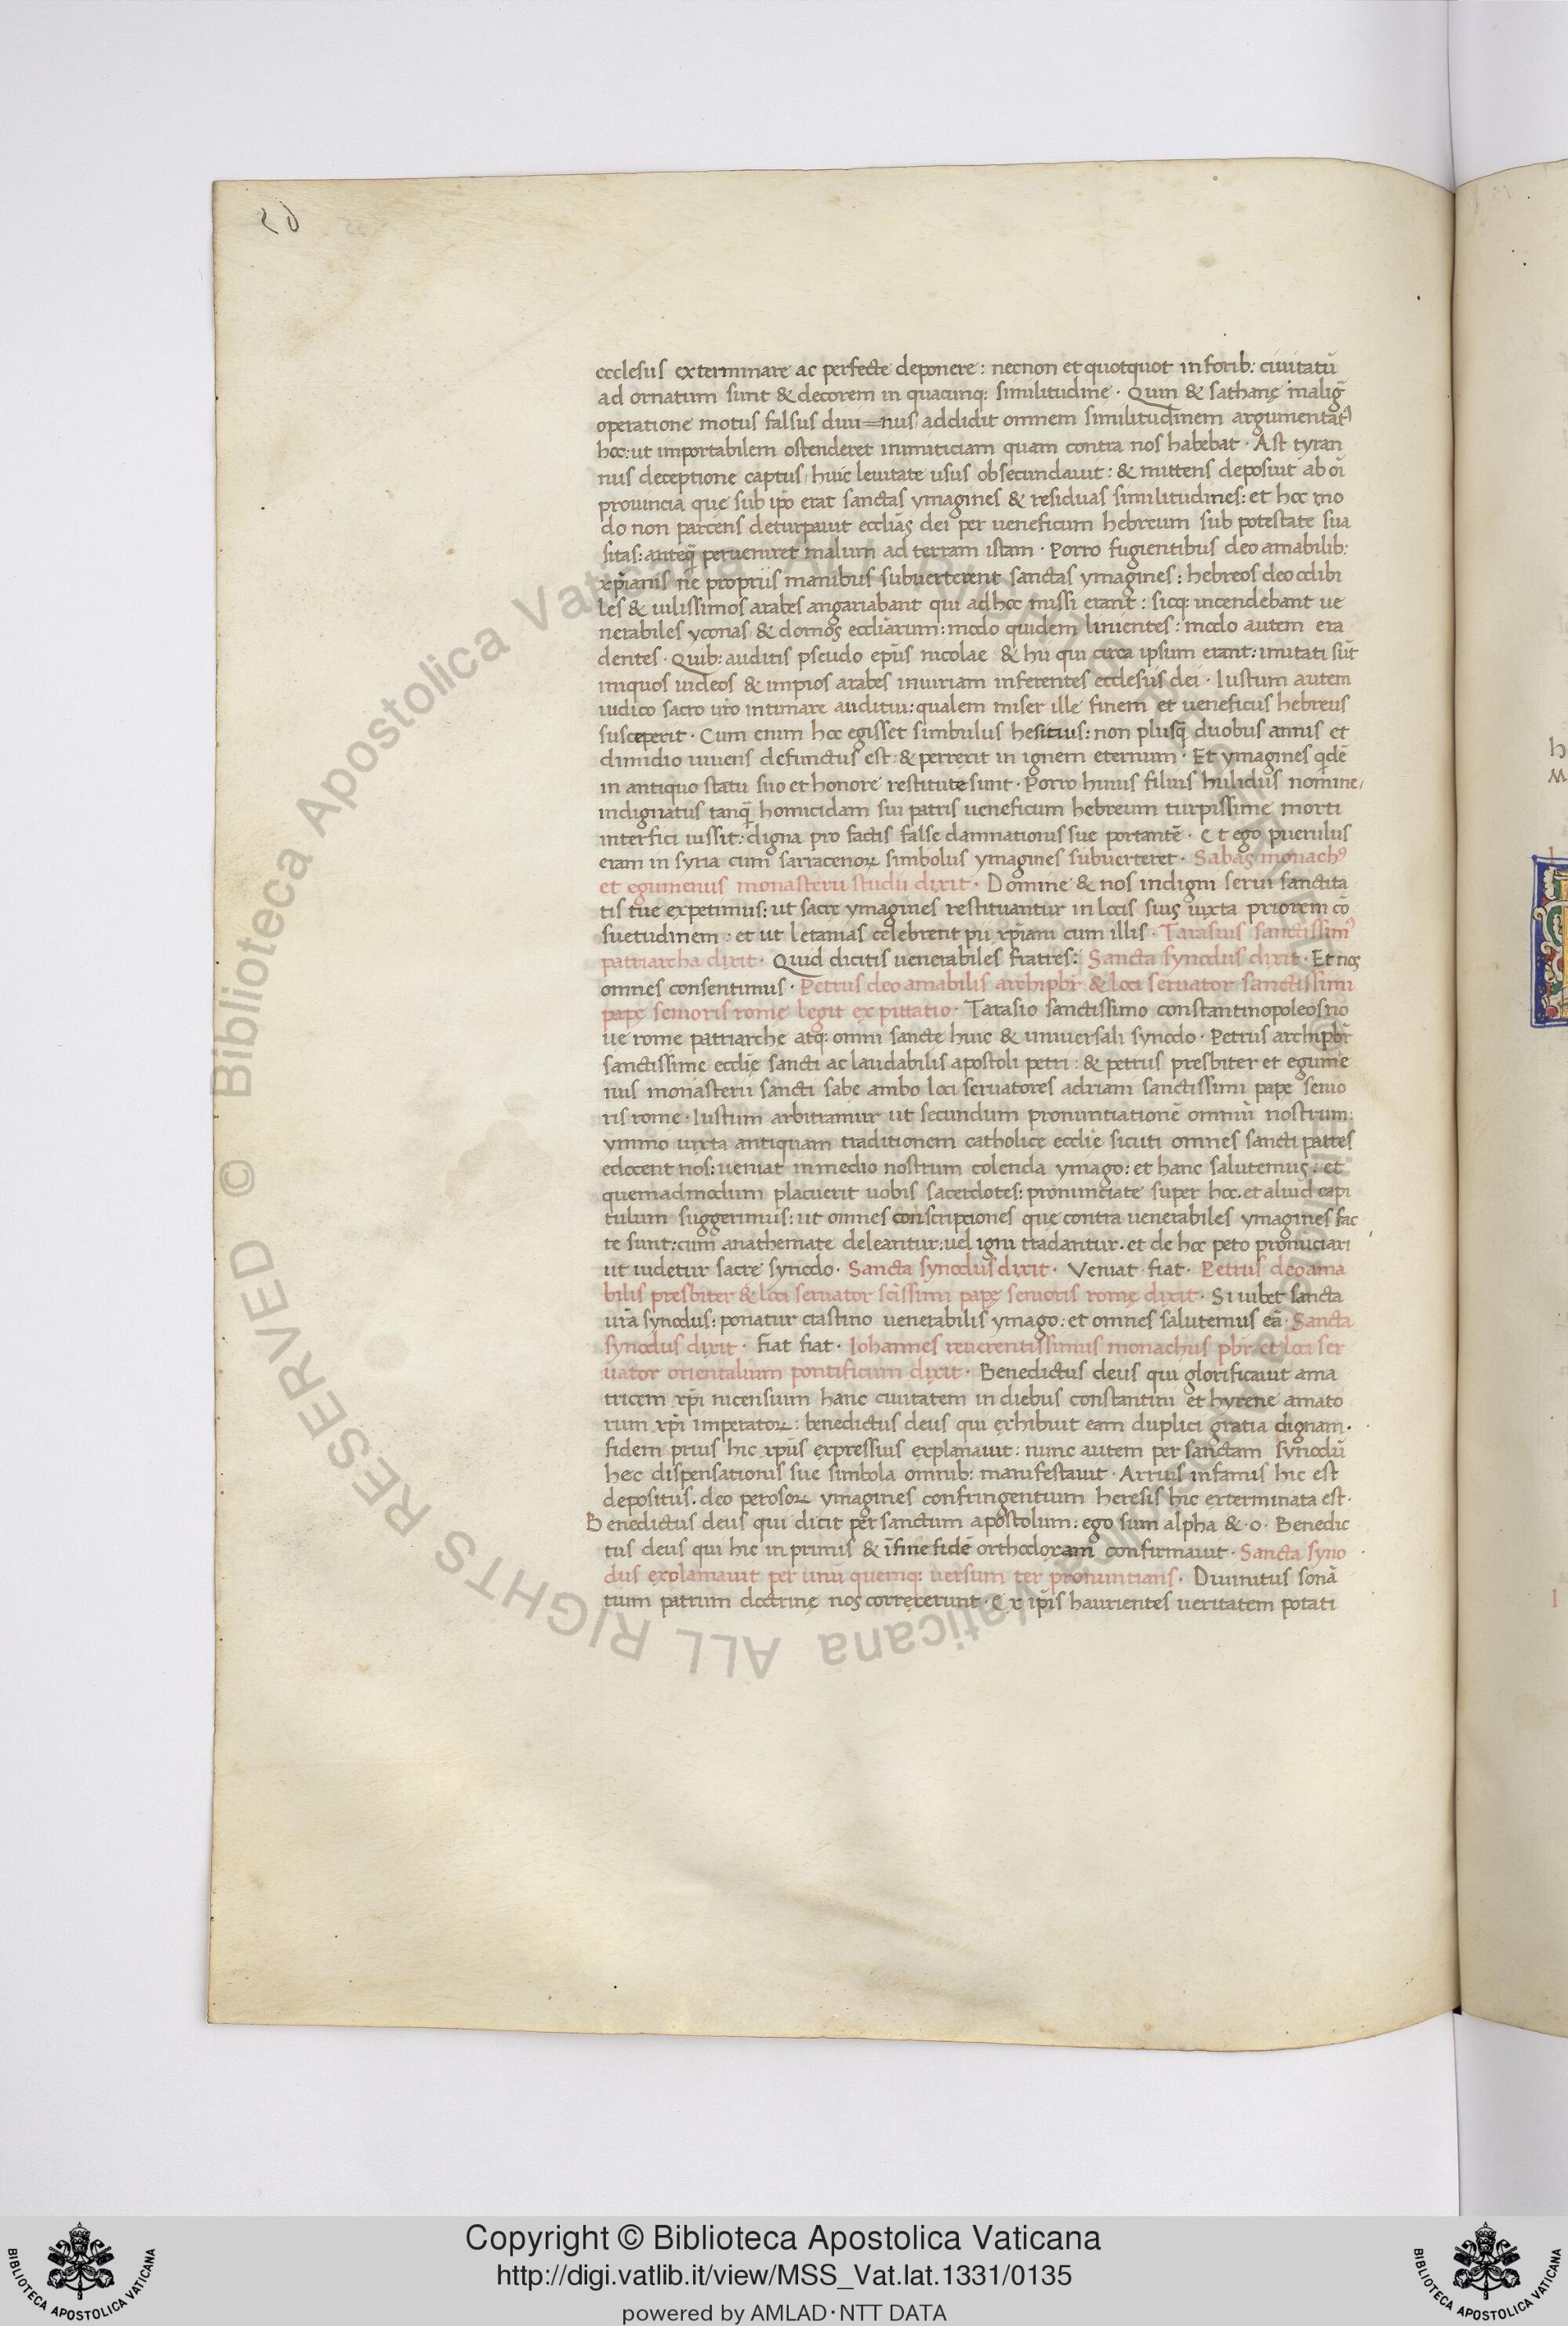 ecclesiis exterminare ac perfecte deponere: necnon et quotquot in forib: ciuitatū
ad ornatum sunt & decorem in quacunq: similitudine · Quin & sathanę malig̃
operatione motus falsus diui=nus addidit omnem similitudinem argumentatꝰ
hoc: ut importabilem ostenderet inimiticiam quam contra nos habebat · Ast tyran
nus deceptione captus huic leuitate usus obsecundauit: & mittens deposuit ab oī
prouincia quę sub ipo erat sanctas ymagines & residuas similitudines: et hoc mo
do non parcens deturpauit eccliās dei per ueneficum hebreum sub potestate sua
sitas: anteq̄ perueniret malum ad terram istam · Porro fugientibus deo amabilib:
xp̄ianis ne propriis manibus subuerterent sanctas ymagines: hebreos deo odibi
les & uilissimos arabes angariabant qui ad hoc missi erant: sicq: incendebant ue
nerabiles yconas & domos eccliārum: modo quidem linientes: modo autem era
dentes · Quib: auditis pseudo ep̄us nicolae & hii qui circa ipsum erant: imitati sūt
iniquos iudeos & impios arabes iniuriam inferentes ecclesiis dei · Iustum autem
iudico sacro ur̄o intimare auditui: qualem miser ille finem et ueneficus hebreus
susceperit · Cum enim hoc egisset simbulus hesitius: non plusq̄ duobus annis et
dimidio uiuens defunctus est: & perrexit in ignem eternum · Et ymagines qdē
in antiquo statu suo et honore restitute sunt · Porro huius filius hulidus nomine/
indignatus tanq̄ homicidam sui patris ueneficum hebreum turpissime morti
interfici iussit: digna pro factis false damnationis sue portantē · Et ego puerulus
eram in syria cum sarracenoꝝ simbolus ymagines subuerteret · Sabas monachꝰ
et egumenus monasterii studii dixit · Domine & nos indigni serui sanctita
tis tue expetimus: ut sacre ymagines restituantur in locis suis iuxta priorem cō
suetudinem · et ut letanias celebrent pii xp̄iani cum illis · Tarasius sanctissimꝰ
patriarcha dixit · Quid dicitis uenerabiles fratres: Sancta synodus dixit · Et nos
omnes consentimus · Petrus deo amabilis archipbr̄ & loci seruator sanctissimi
papę senioris romę legit ex pittatio · Tarasio sanctissimo constantinopoleos no
ue rome patriarche atq: omni sancte huic & uniuersali synodo · Petrus archipbr̄
sanctissime ecclīe sancti ac laudabilis apostoli petri: & petrus presbiter et egume
nus monasterii sancti sabe ambo loci seruatores adriani sanctissimi pape senio
ris rome · Iustum arbitramur ut secundum pronuntiationē omniū nostrum:
ymmo iuxta antiquam traditionem catholice ecclīe sicuti omnes sancti patres
edocent nos: ueniat in medio nostrum colenda ymago: et hanc salutemus: et
quemadmodum placuerit uobis sacerdotes: pronunciate super hoc. et aliud capi
tulum suggerimus: ut omnes conscriptiones que contra uenerabiles ymagines fac
te sunt: cum anathemate deleantur: uel igni tradantur. et de hoc peto pronūciari
ut uidetur sacre synodo · Sancta synodus dixit · Veniat fiat · Petrus deo ama
bilis presbiter & loci seruator sc̄issimi papę senioris romę dixit · Si iubet sancta
ur̄a synodus: ponatur crastino uenerabilis ymago: et omnes salutemus eā · Sancta
synodus dixit · fiat fiat · Iohannes reuerentissimus monachus pbr̄ et loci ser
uator orientalium pontificum dixit · Benedictus deus qui glorificauit ama
tricem xp̄i nicensium hanc ciuitatem in diebus constantini et hyrene amato
rum xp̄i imperatoꝝ: benedictus deus qui exhibuit eam duplici gratia dignam ·
fidem prius hic xp̄us expressius explanauit: nunc autem per sanctam synodū
hec dispensationis sue simbola omnib: manifestauit · Arrius infamis hic est
depositus. deo perosoꝝ ymagines confringentium heresis hic exterminata est ·
Benedictus deus qui dicit per sanctum apostolum: ego sum alpha & · o · Benedic
tus deus qui hic in primis & ī fine fidē orthodoxam confirmauit · Sancta syno
dus exclamauit per unū quemq: uersum ter pronuntians · Diuinitus sonā
tium patrum doctrinę nos correxerunt · Ex ip̄is haurientes ueritatem potati
Copyright © Biblioteca Apostolica Vaticana
http://digi.vatlib.it/view/MSS_Vat.lat.1331/0135
powered by AMLAD·NTT DATA